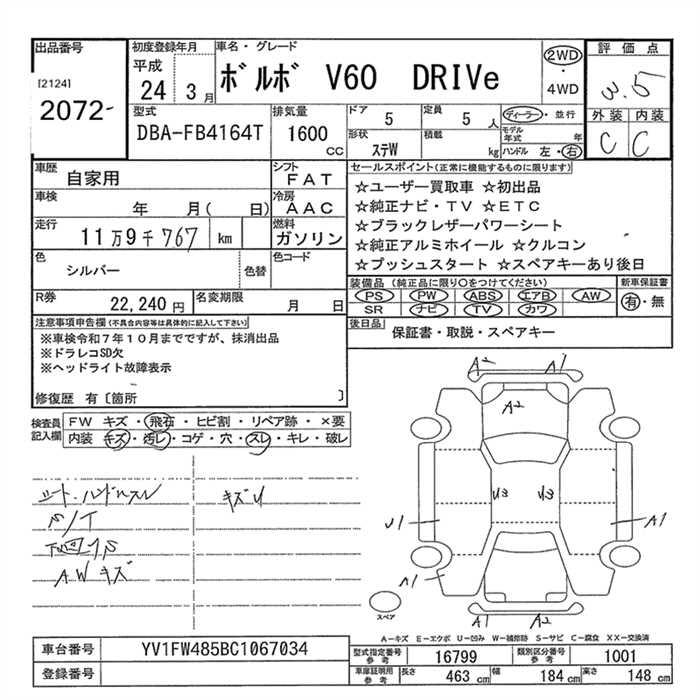 出品番号
[2124]
2072
初度登録年月
平成
24 3月
車名・グレード
ボルボ V60 DRIVe
2WD
・
4WD
評価点
3.5
外装 内装
C C
型式
DBA-FB4164T
排気量
1600
CC
ドア
5
定員
5 人
形状
ステW
積載
kg
ディーラー・並行
モデル年式 年
ハンドル 左・右
車歴
自家用
シフト
FAT
車検
年 月( 日)
冷房
AAC
走行
11万9千767 km
燃料
ガソリン
色
シルバー
色替
色コード
R券
22,240 円
名変期限
月 日
セールスポイント(正常に機能するものに限ります)
☆ユーザー買取車 ☆初出品
☆純正ナビ・TV ☆ETC
☆ブラックレザーパワーシート
☆純正アルミホイール ☆クルコン
☆プッシュスタート ☆スペアキーあり後日
装備品(純正品に限り○をつけてください)
PS PW ABS エアB AW
SR ナビ TV カワ
新車保証書
有・無
後日品
保証書・取説・スペアキー
注意事項申告欄(不具合内容等は具体的に記入して下さい)
※車検令和7年10月まてですが、抹消出品
※ドラレコSD欠
※ヘッドライト故障表示
修復歴 有〔箇所 〕
検査員記入欄
FW キズ・飛石・ヒビ割・リペア跡・×要
内装 キズ・汚レ・コゲ・穴・スレ・キレ・破レ
シート・ハンドルスレ
キズU
AWキズ
A2 A1
A2
U3 U3
U1 A1
A1
A1 A2
スペア
A−キズ E−エクボ U−凹み W−補修跡 S−サビ C−腐食 XX−交換済
車台番号
YV1FW485BC1067034
登録番号
型式指定番号
参考
16799
類別区分番号
参考
1001
車庫証明用
参考
長さ 463 cm
幅 184 cm
高さ 148 cm